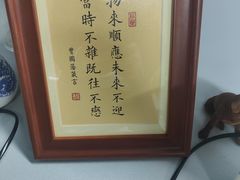 物來順應未來不迎
當時不雜既往不戀
曾國藩箴言